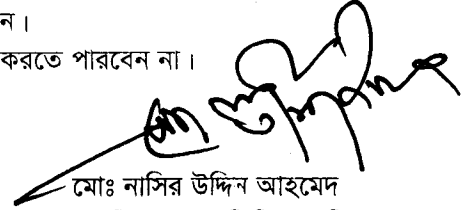 ন।
করতে পারবেন না।
মোঃ নাসির উদ্দিন আহমেদ